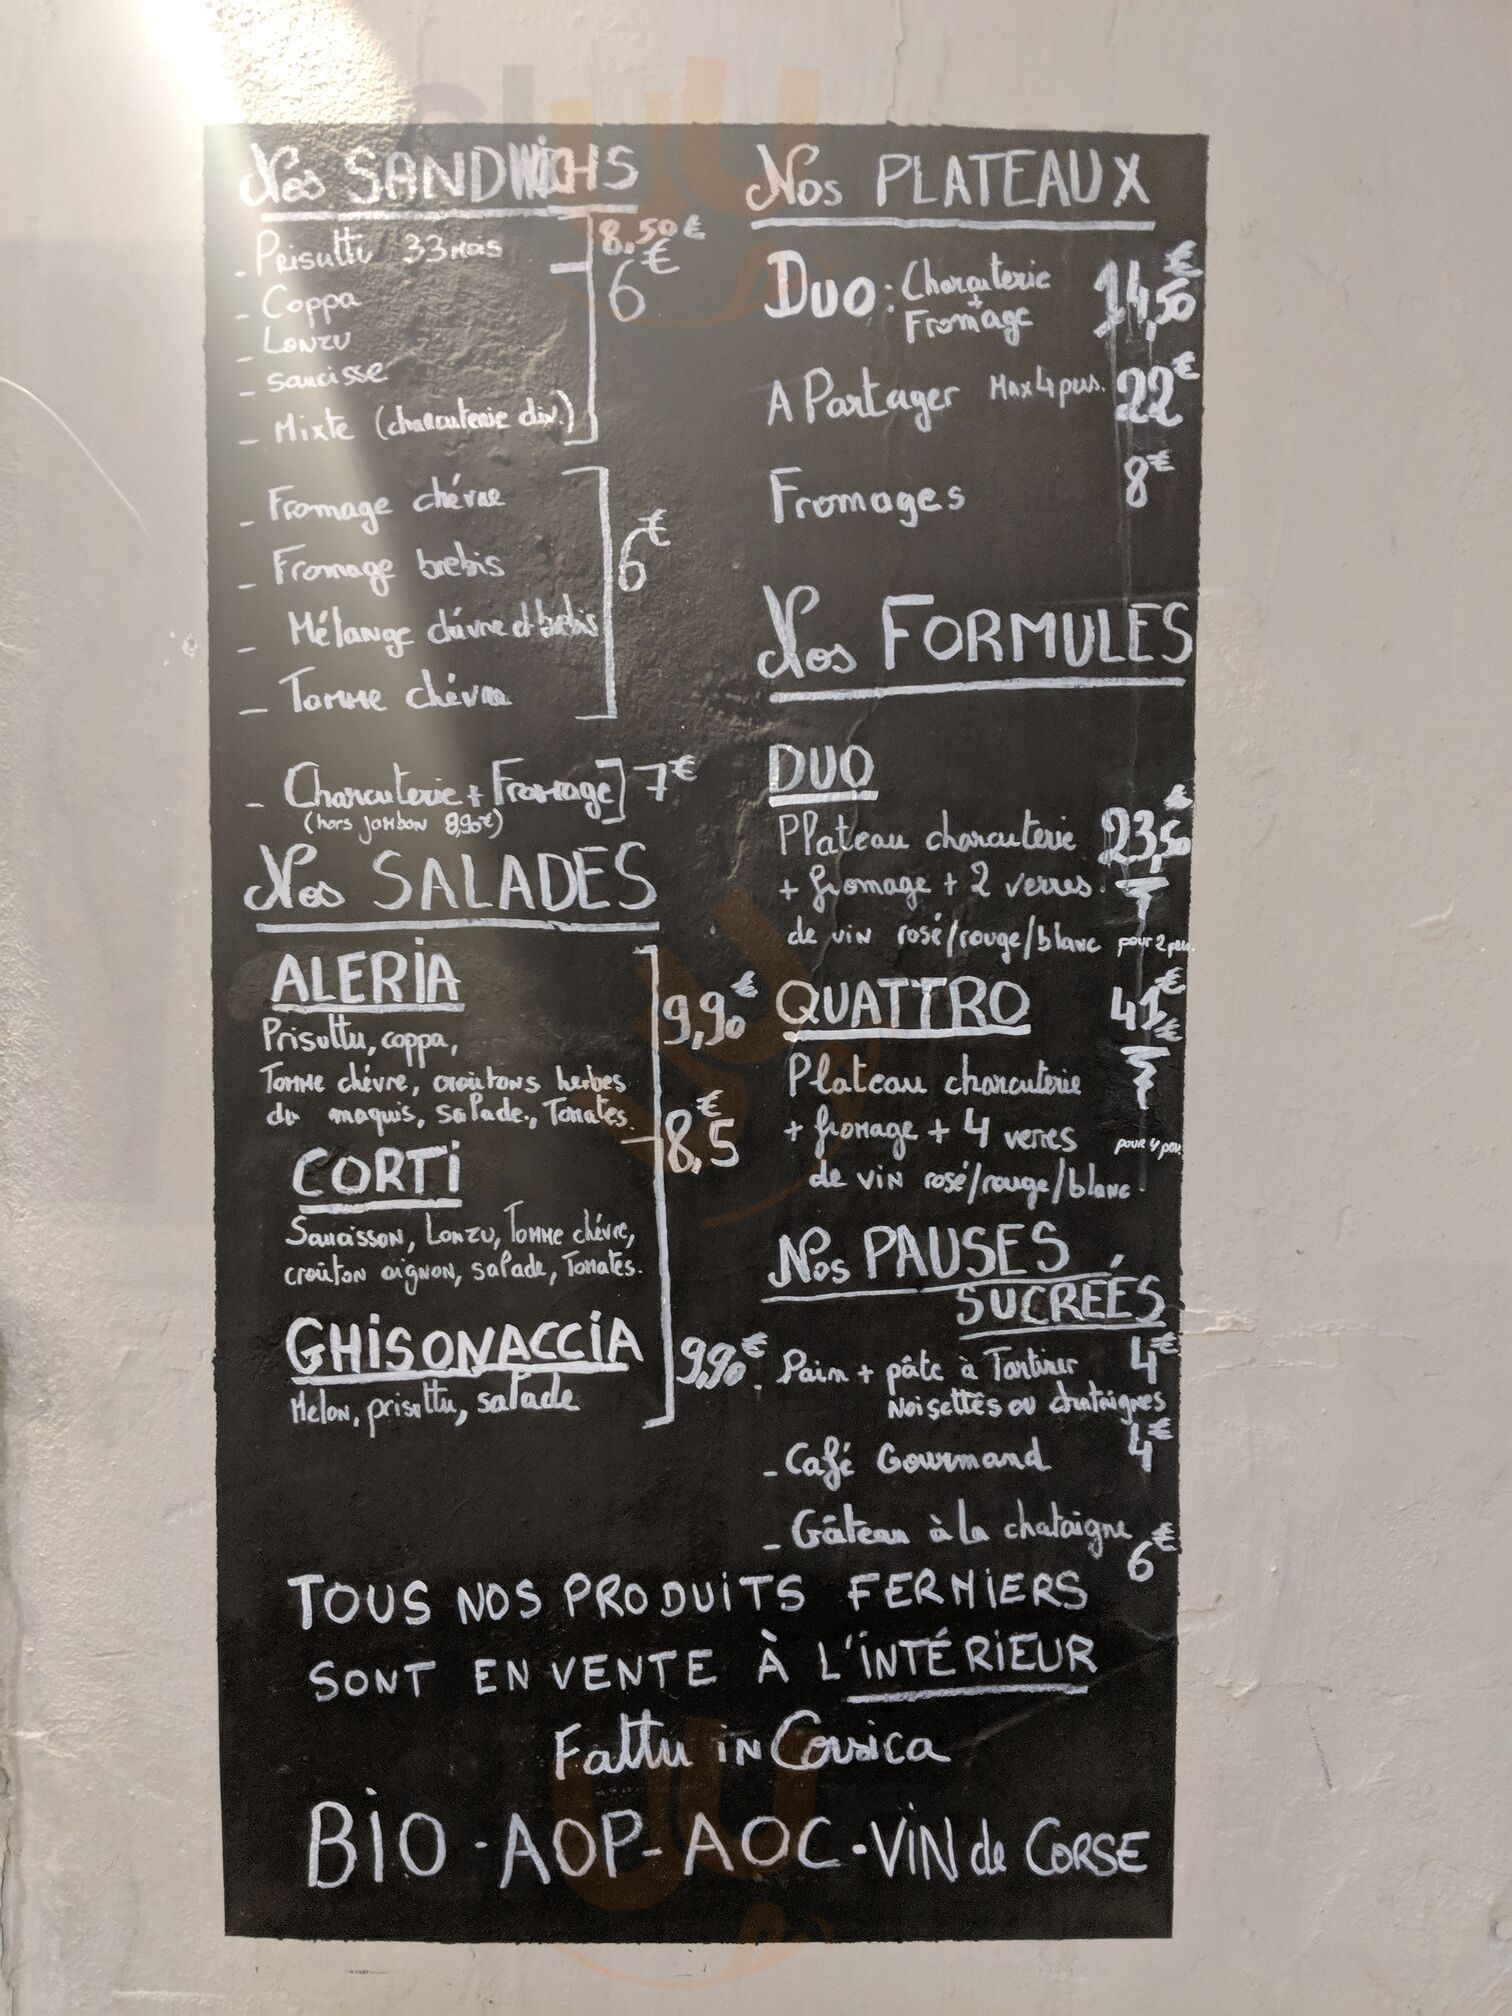 Nos SANDWICHS
- Prisuttu 33 mois 8,50€
- Coppa 6€
- Lonzu
- saucisse
- Mixte (charcuterie div.)
- Fromage chévre
- Fromage brebis 6€
- Mélange chévre et brebis
- Tomme chévre
- Charcuterie + Fromage 7€
(hors jambon 8,90€)
Nos SALADES
ALERIA
Prisuttu, coppa, 9,90€
Tomme chévre, croûtons herbes
du maquis, salade, Tomates.
CORTI 8,5€
Saucisson, Lonzu, Tomme chévre,
croûton oignon, salade, Tomates.
GHISONACCIA 9,90€
Melon, prisuttu, salade
Nos PLATEAUX
DUO: Charcuterie 14,50€
+
Fromage
A Partager Max 4 pers. 22€
Fromages 8€
Nos FORMULES
DUO
Plateau charcuterie 23,50€
+ fromage + 2 verres
de vin rosé/rouge/blanc pour 2 pers.
QUATTRO 41€
Plateau charcuterie
+ fromage + 4 verres pour 4 pers.
de vin rosé/rouge/blanc
Nos PAUSES
SUCRÉES
Pain + pâte à Tartiner 4€
Noisettes ou chataignes
- Café Gourmand 4€
- Gâteau à la chataigne 6€
TOUS NOS PRODUITS FERMIERS
SONT EN VENTE À L'INTÉRIEUR
Fattu in Corsica
BIO - AOP - AOC - VIN de CORSE